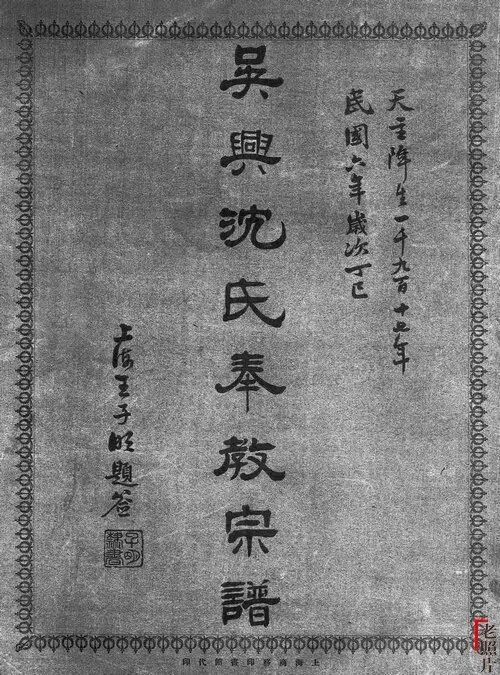 天主降生一千九百十七年
民國六年歲次丁巳
吳興沈氏奉教宗譜
上海王子明題簽
上海商務印書館代印
老照片